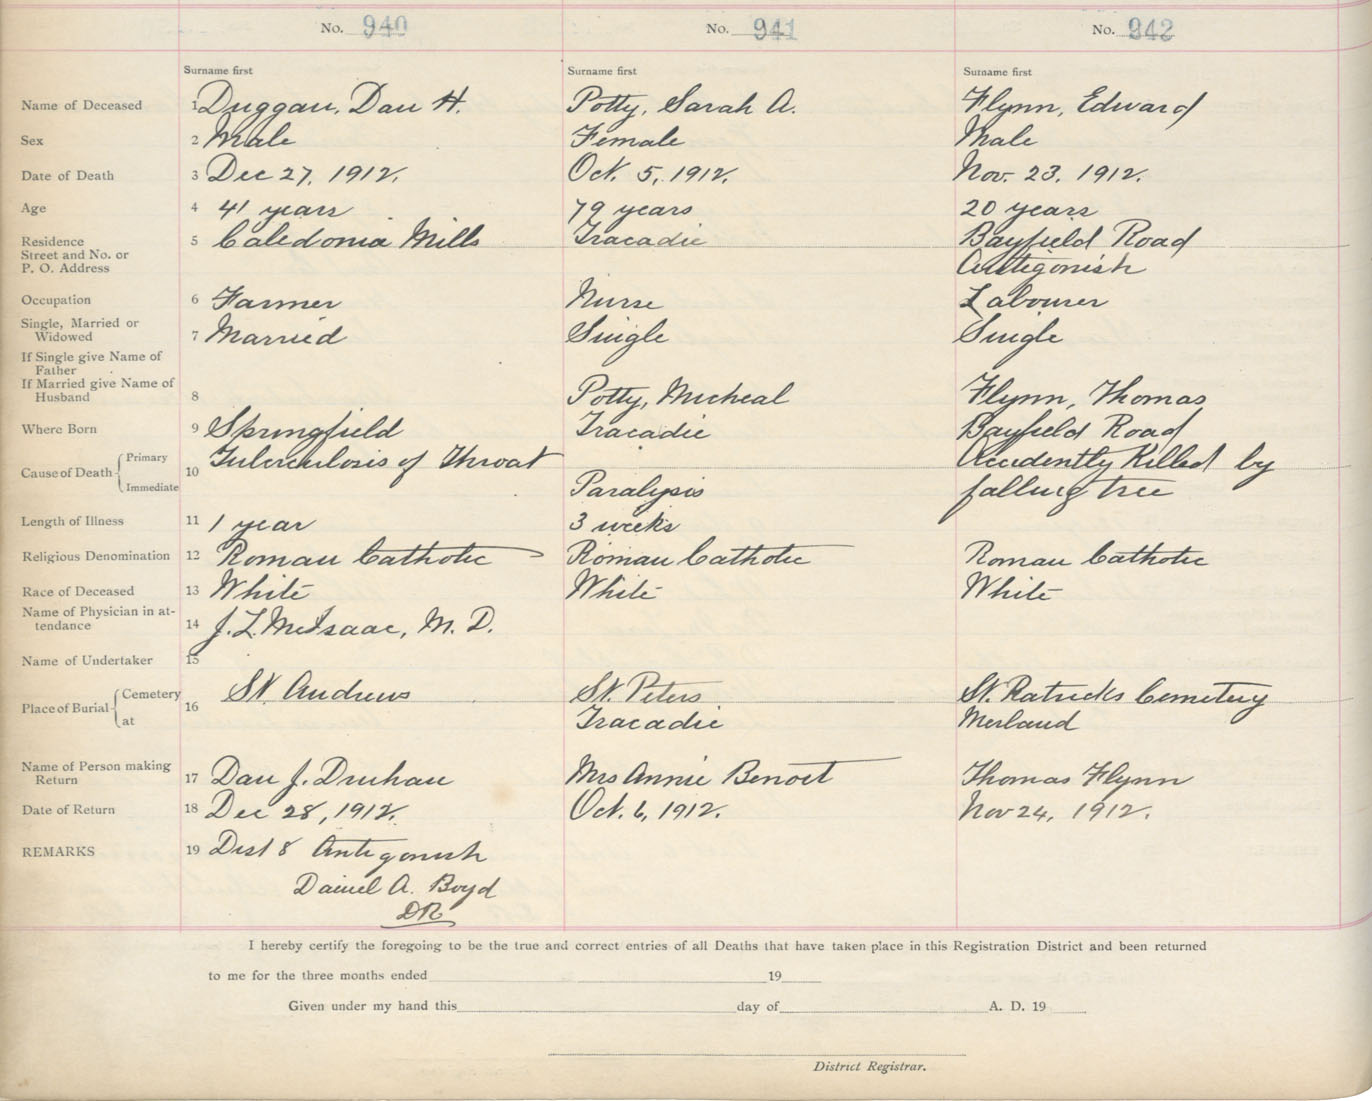 No. 940 No. 941 No. 942
Surname first Surname first Surname first
Name of Deceased 1 Duggan, Dan H. Potty, Sarah A. Flynn, Edward
Sex 2 Male Female Male
Date of Death 3 Dec 27, 1912. Oct. 5, 1912. Nov. 23. 1912.
Age 4 41 years 79 years 20 years
Residence 5 Caledonia Mills Tracadie Bayfield Road
Street and No. or
P. O. Address Antigonish
Occupation 6 Farmer Nurse Labourer
Single, Married or
Widowed 7 Married Single Single
If Single give Name of
Father
If Married give Name of
Husband 8 Potty, Micheal Flynn, Thomas
Where Born 9 Springfield Tracadie Bayfield Road
Cause of Death Primary 10 Tuberculosis of Throat Accidently Killed by
Immediate Paralysis falling tree
Length of Illness 11 1 year 3 weeks
Religious Denomination 12 Roman Catholic Roman Catholic Roman Catholic
Race of Deceased 13 White White White
Name of Physician in at-
tendance 14 J. L. McIsaac, M. D.
Name of Undertaker 15
Place of Burial Cemetery 16 St. Andrews St. Peters St. Patricks Cemetery
at Tracadie Merland
Name of Person making
Return 17 Dan J. Druhan Mrs Annie Benoit Thomas Flynn
Date of Return 18 Dec 28, 1912. Oct. 6, 1912. Nov 24, 1912.
REMARKS 19 Dist 8 Antigonish
Daniel A. Boyd
DR
I hereby certify the foregoing to be the true and correct entries of all Deaths that have taken place in this Registration District and been returned
to me for the three months ended 19
Given under my hand this day of A. D. 19
District Registrar.